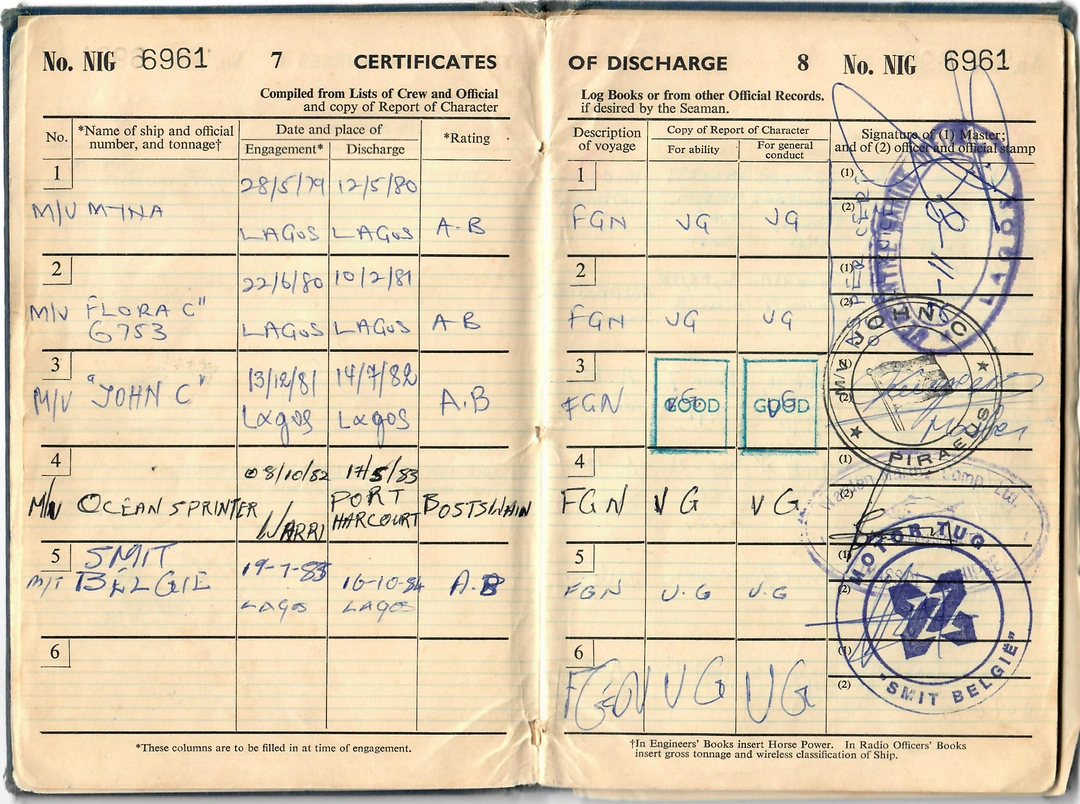 No. NIG 6961 7 CERTIFICATES
Compiled from Lists of Crew and Official
and copy of Report of Character
No. *Name of ship and official number, and tonnage† Date and place of *Rating
Engagement* Discharge
1 28/5/79 12/5/80
M/V
LAGOS LAGOS A.B
2 22/6/80 10/2/81
M/V FLORA C"
6753 LAGOS LAGOS A B
3 13/12/81 14/7/82
M/V "JOHN C" Lagos Lagos A.B
4 08/10/82 17/5/83
M/V OCEAN SPRINTER WARRI PORT HARCOURT BOSTSWAIN
5 SMIT 19-7-83 16-10-84
BELGIE LAGOS LAGOS A.B
6
*These columns are to be filled in at time of engagement.
OF DISCHARGE 8 No. NIG 6961
Log Books or from other Official Records.
if desired by the Seaman.
Description of voyage Copy of Report of Character Signature of (1) Master; and of (2) officer and official stamp
For ability For general conduct
1 (1)
FGN VG VG (2)
LAGOS
2 (1)
FGN VG VG (2)
3 (1)
FGN GOOD VG GOOD VG (2)
M/V JOHN C
PIRAEUS
Master
4 (1)
FGN VG VG (2)
5 (1)
FGN V.G V.G (2)
MOTOR TUG
"SMIT BELGIE"
6 (1)
VG VG (2)
†In Engineers' Books insert Horse Power. In Radio Officers' Books
insert gross tonnage and wireless classification of Ship.